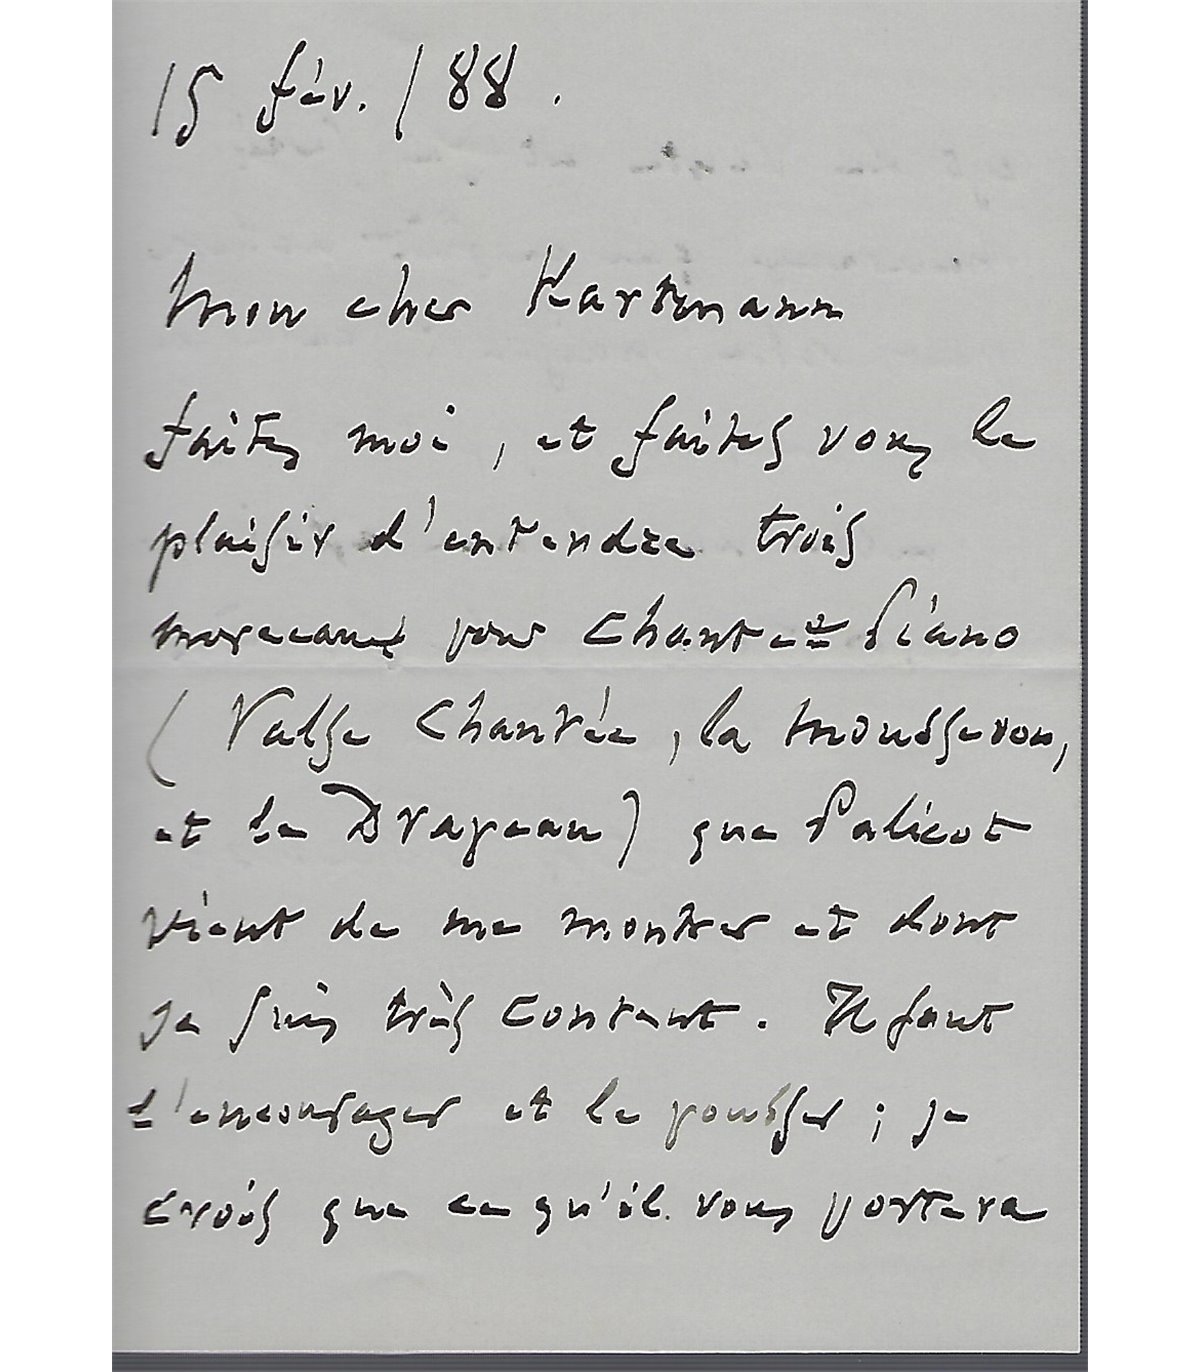 15 fév. /88.
Mon cher Hartmann
faites moi, et faites vous le
plaisir d'entendre trois
morceaux pour Chant et Piano
(Valse Chantée, la Mousseron,
et le Drapeau) que Palicot
vient de me montrer et dont
je suis très content. Il faut
l'encourager et le pousser; je
crois que ce qu'il vous portera